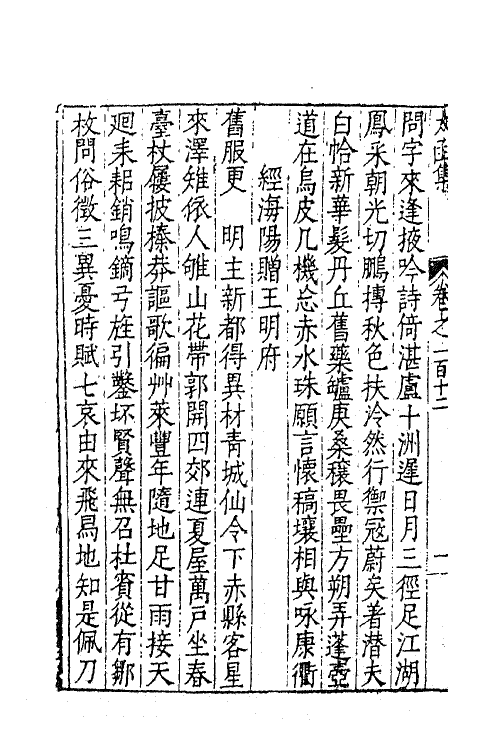 太函集
卷之一百十二
一
問字來逢掖吟詩倚湛盧十洲遲日月三徑足江湖
鳳采朝光切鵬摶秋色扶泠然行禦冦蔚矣著潛夫
白帢新華髮丹丘舊藥鑪庚桑穰畏壘方朔弄蓬壺
道在烏皮几機忘赤水珠願言懷稿壤相與咏康衢
經海陽贈王明府
舊服更　明主新都得異材青城仙令下赤縣客星
來澤雉依人雊山花帶郭開四郊連夏屋萬戶坐春
臺杖屨披榛莽謳歌徧艸萊豐年隨地足甘雨接天
廻耒耜銷鳴鏑弓旌引鑿坏賢聲無召杜賓從有鄒
枚問俗徵三異憂時賦七哀由來飛舄地知是佩刀